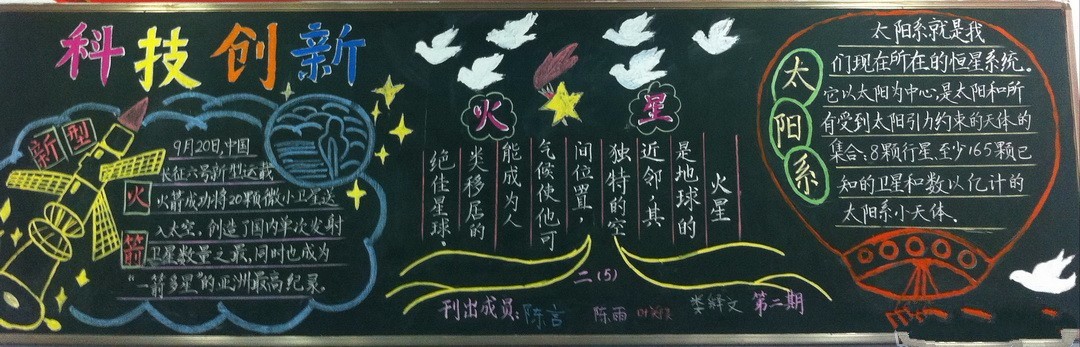 科技创新
新型
火
箭
9月20日,中国
长征六号新型运载
火箭成功将20颗微小卫星送
入太空,创造了国内单次发射
卫星数量之最,同时也成为
“一箭多星”的亚洲最高纪录。
火星
火星
是地球的
近邻,其
独特的空
间位置,
气候使他可
能成为人
类移居的
绝佳星球。
二(5)
刊出成员:陈言 陈雨
第二期
太阳系
太阳系就是我
们现在所在的恒星系统。
它以太阳为中心,是太阳和所
有受到太阳引力约束的天体的
集合:8颗行星、至少165颗已
知的卫星和数以亿计的
太阳系小天体。